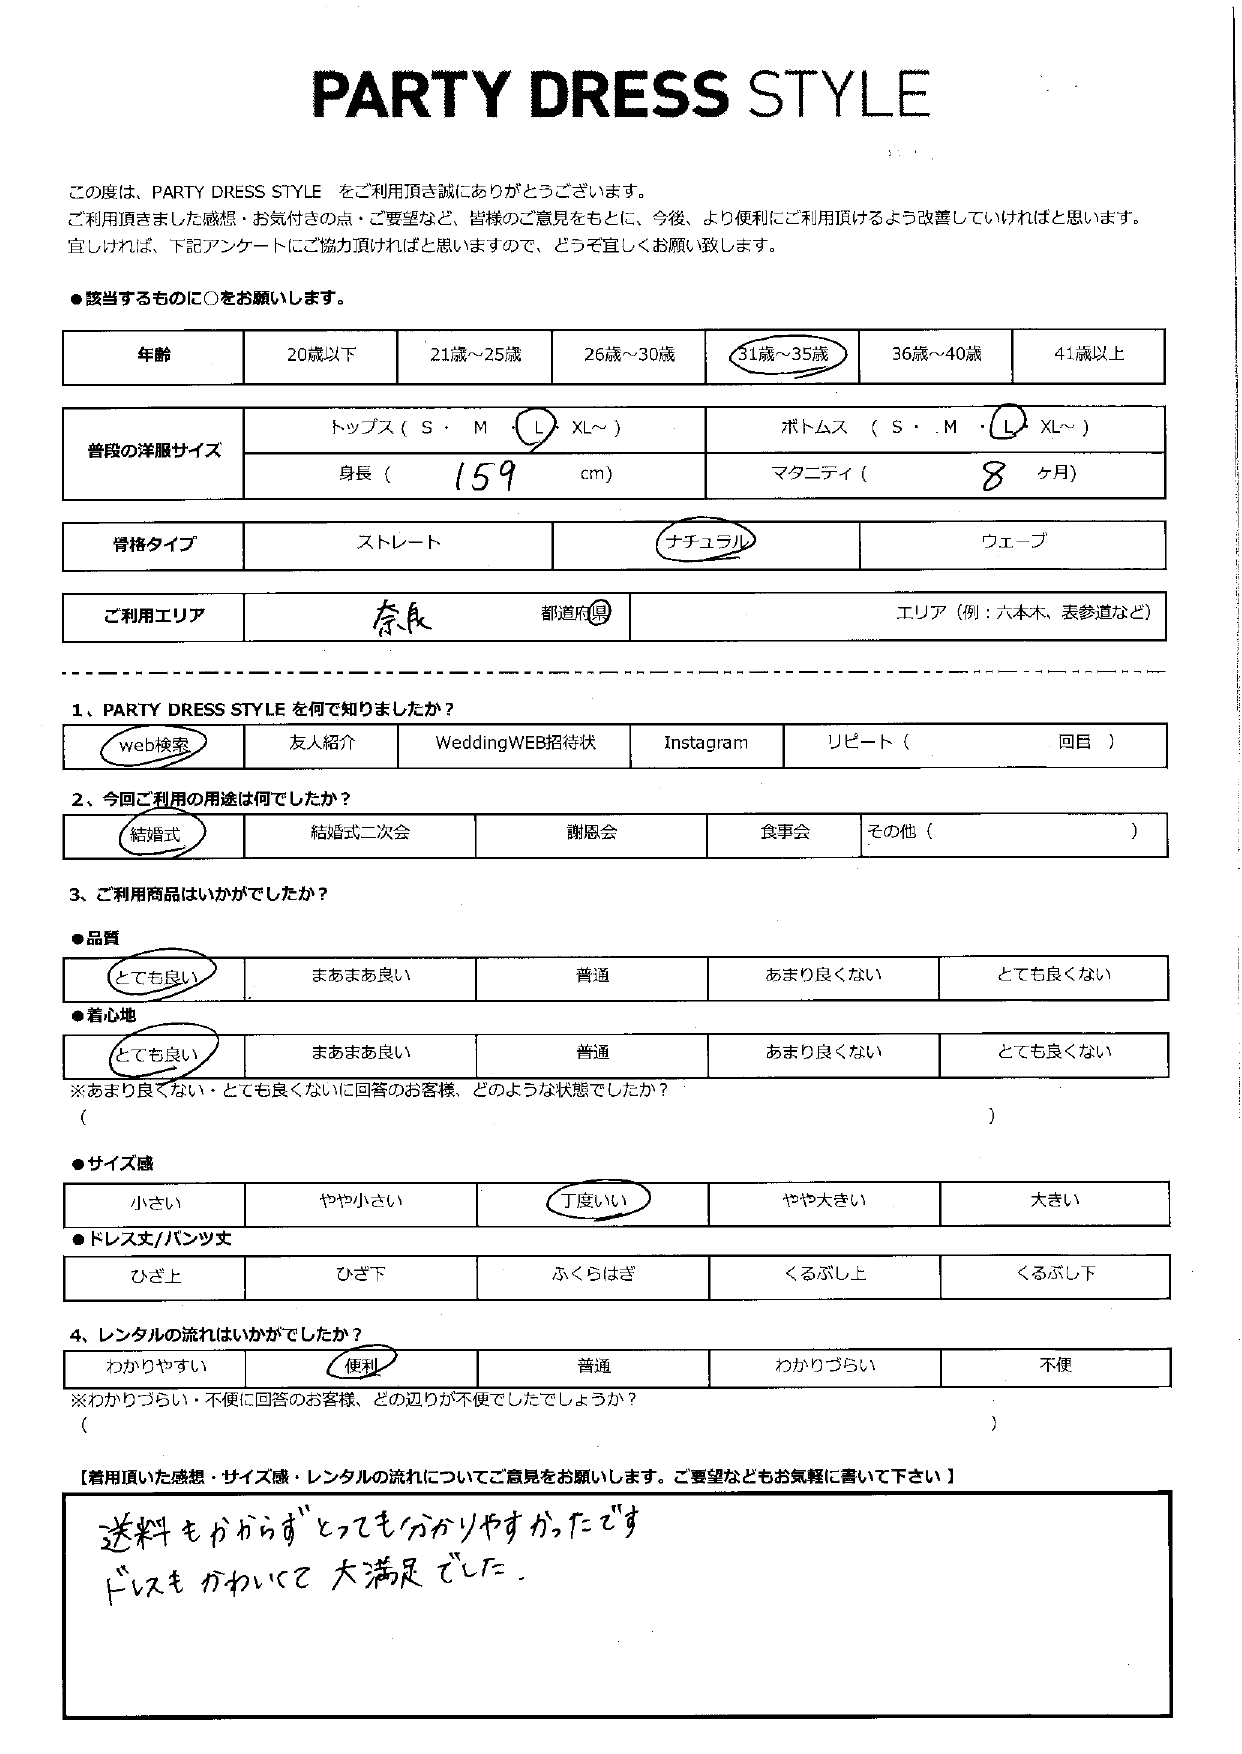 PARTY DRESS STYLE
この度は、PARTY DRESS STYLE をご利用頂き誠にありがとうございます。
ご利用頂きました感想・お気付きの点・ご要望など、皆様のご意見をもとに、今後、より便利にご利用頂けるよう改善していければと思います。
宜しければ、下記アンケートにご協力頂ければと思いますので、どうぞ宜しくお願い致します。
●該当するものに○をお願いします。
年齢 20歳以下 21歳～25歳 26歳～30歳 31歳～35歳 36歳～40歳 41歳以上
普段の洋服サイズ
トップス ( S ・ M ・ L ・ XL～ ) ボトムス ( S ・ M ・ L ・ XL～ )
身長 ( 159 cm) マタニティ ( 8 ヶ月)
骨格タイプ ストレート ナチュラル ウェーブ
ご利用エリア 奈良 都道府県 エリア（例：六本木、表参道など）
1、PARTY DRESS STYLE を何で知りましたか？
web検索 友人紹介 WeddingWEB招待状 Instagram リピート（ 回目 ）
2、今回ご利用の用途は何でしたか？
結婚式 結婚式二次会 謝恩会 食事会 その他（ ）
3、ご利用商品はいかがでしたか？
●品質
とても良い まあまあ良い 普通 あまり良くない とても良くない
●着心地
とても良い まあまあ良い 普通 あまり良くない とても良くない
※あまり良くない・とても良くないに回答のお客様、どのような状態でしたか？
（ ）
●サイズ感
小さい やや小さい 丁度いい やや大きい 大きい
●ドレス丈/パンツ丈
ひざ上 ひざ下 ふくらはぎ くるぶし上 くるぶし下
4、レンタルの流れはいかがでしたか？
わかりやすい 便利 普通 わかりづらい 不便
※わかりづらい・不便に回答のお客様、どの辺りが不便でしたでしょうか？
（ ）
【着用頂いた感想・サイズ感・レンタルの流れについてご意見をお願いします。ご要望などもお気軽に書いて下さい 】
送料もかからずとっても分かりやすかったです
ドレスもかわいくて大満足でした.